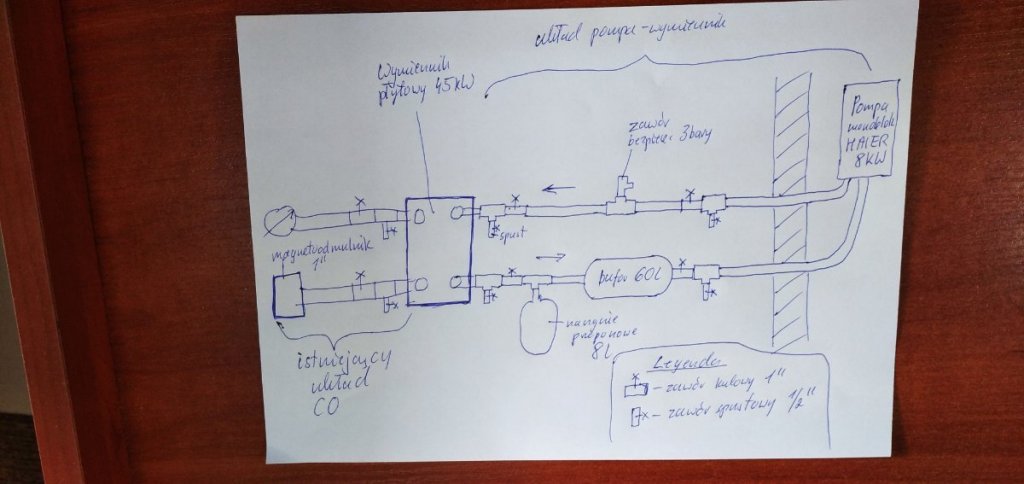 układ pompa-wymiennik
Wymiennik
płytowy 45kW
zawór
bezpiecz. 3bary
Pompa
monoblok
HAIER
8KW
spust
magnetoodmulnik
1"
bufor 60L
naczynie
przeponowe
8L
istniejący
układ
CO
Legenda
- zawór kulowy 1"
- zawór spustowy 1/2"